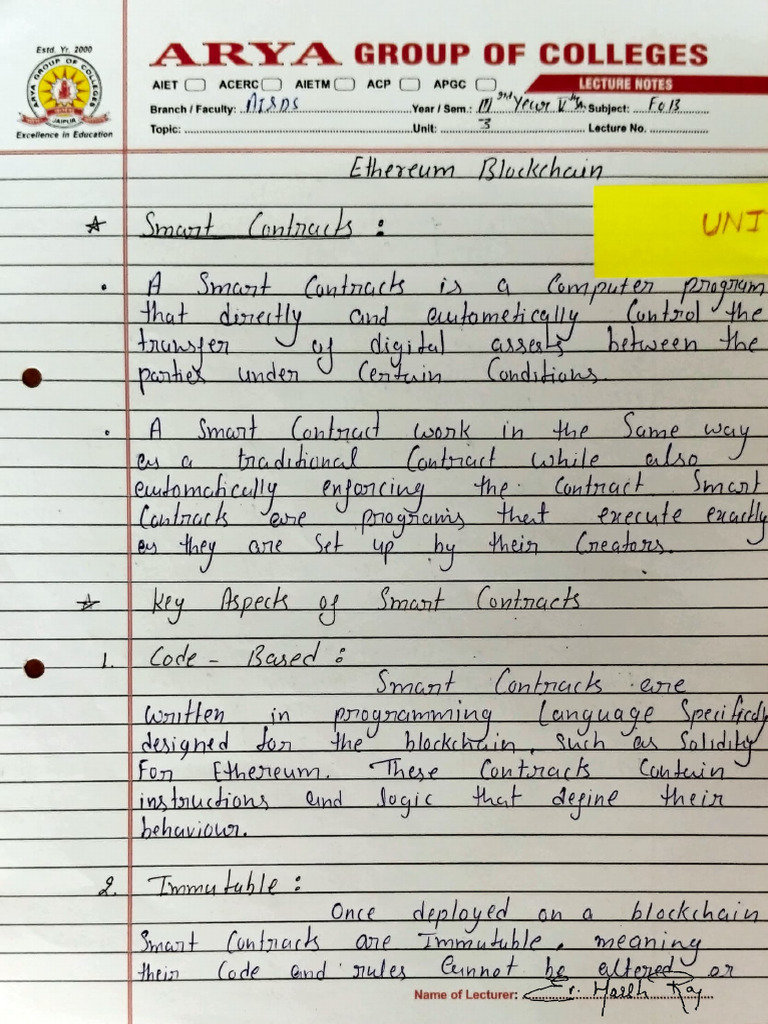 Estd. Yr. 2000
ARYA GROUP OF COLLEGES
JAIPUR
Excellence in Education
ARYA GROUP OF COLLEGES
AIET ACERC AIETM ACP APGC LECTURE NOTES
Branch / Faculty: AI&DS Year / Sem.: III rd Year V th Subject: FOB
Topic: Unit: 3 Lecture No.
Ethereum Blockchain
UNI
☆ Smart Contracts :
• A Smart Contracts is a Computer program
that directly and automatically Control the
transfer of digital assests between the
parties under Certain Conditions.
• A Smart Contract work in the Same way
as a traditional Contract while also
automatically enforcing the Contract Smart
Contracts are programs that execute exactly
as they are Set up by their Creators.
☆ Key Aspects of Smart Contracts
1. Code - Based :
Smart Contracts are
written in programming Language Specifically
designed for the blockchain, such as Solidity
For Ethereum. These Contracts Contain
instructions and logic that define their
behaviour.
2. Immutable :
Once deployed on a blockchain
Smart Contracts are Immutable, meaning
their Code and rules Cannot be altered or
Name of Lecturer: Er. Harsh Raj